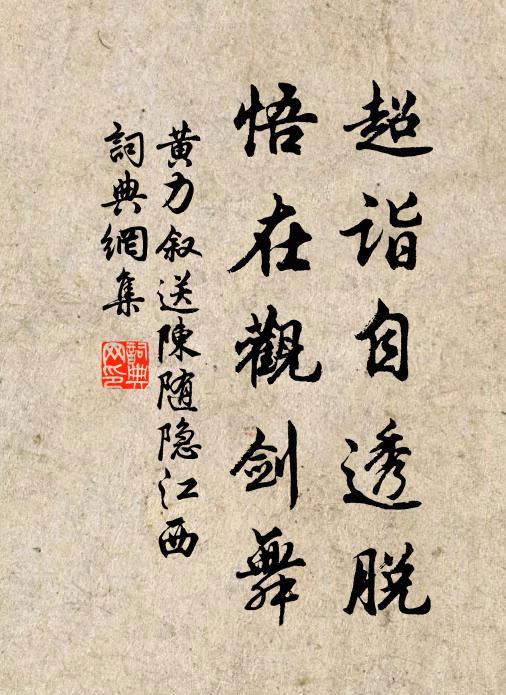 超詣自透脱
悟在觀劍舞
黄力叙送陳随隐江西
詞典網集
詞典
网印